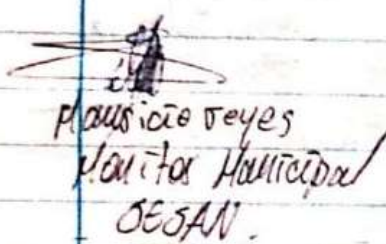 Mausicio reyes
Monitor Municipal
SESAN.